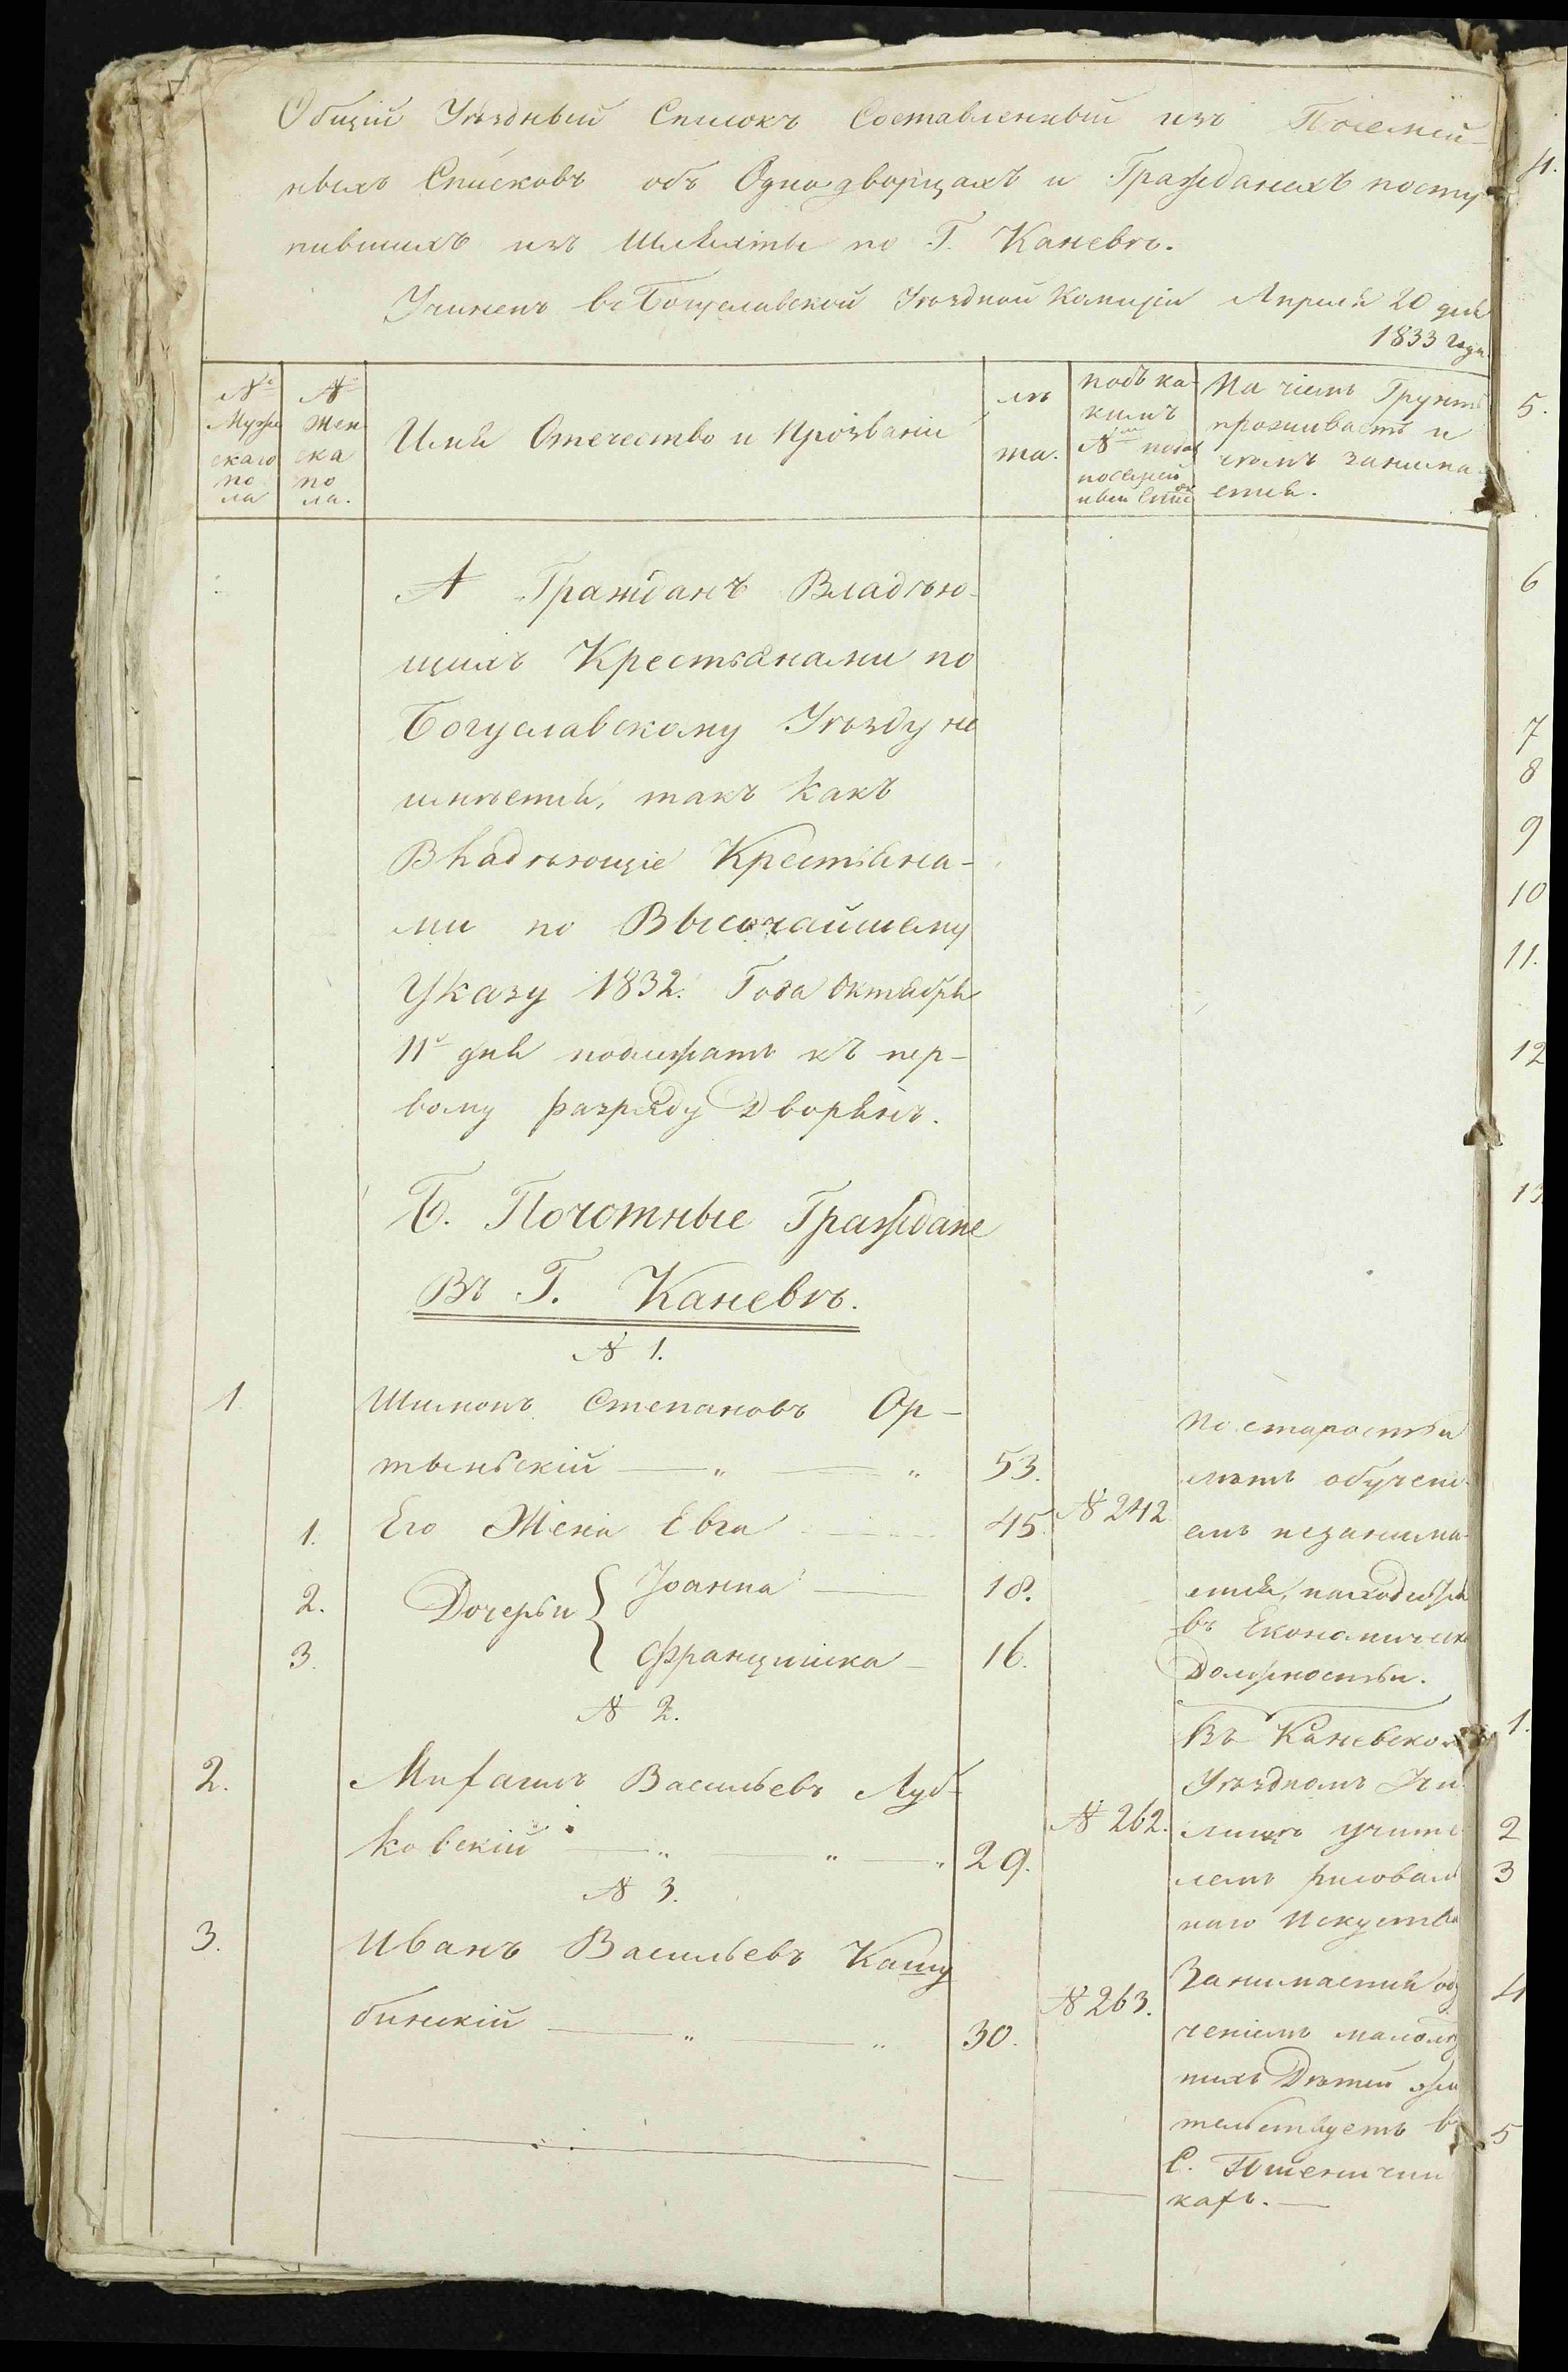 Общій Уѣздный Списокъ Составленный изъ Посемей-
ныхъ Списковъ объ Однодворцахъ и Гражданехъ посту
пившихъ изъ Шляхты по Г. Каневѣ.
Учиненъ въ Богуславской Уѣздной Комиціи Апреля 20 дня
1833 года.
№ Муже скаго по ла
№ Жен ска по ла.
Имя Отечество и Прозваніи
лѣ та.
подъ ка- кимъ №мъ посемей ный
На чіемъ Грунтѣ проживаетъ и чѣмъ занима ется.
А Гражданъ Владѣю-
щихъ Крестьянами по
Богуславскому Уѣзду не
имѣется, такъ какъ
Владѣющіе Крестьяна-
ми по Высочайшему
Указу 1832. Года Октября
11 дня подлежатъ къ пер-
вому разряду Дворянъ.
Б. Почотные Граждане
Въ Г. Каневѣ.
№ 1.
1. Шимонъ Степановъ Ор-
тыньскій 53.
1. Его Жена Евга 45. № 242
2. Дочерьи Іоанна 18.
3. Францишка 16.
По старостьи
лѣтъ обучені-
емъ незанима-
ется, находится
въ Економическ
Должностьи.
№ 2.
2. Михаилъ Васильевъ Луб-
ковскій 29. № 262.
Въ Каневском
Уѣздномъ Учи
лищѣ учите
лемъ рисоваль
наго Искуства
№ 3.
3. Иванъ Васильевъ Кашу
бинскій 30. № 263.
Занимается обу
ченіемъ малолѣ
нихъ Дѣтей жи
тельствуетъ въ
С. Пшенични
кахъ.
4.
5.
6
7
8
9
10
11.
12
13
1.
2
3
4
5